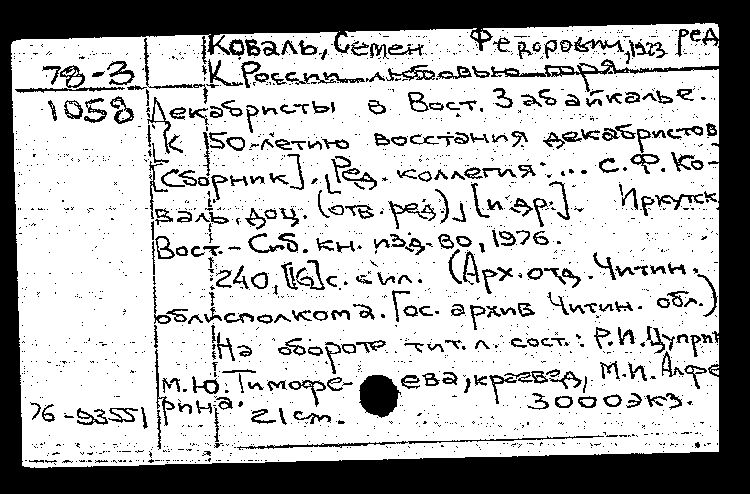 Коваль, Семен Федорович, 1923 ред
78-3 К России любовью горя.
1058 Декабристы в Вост. Забайкалье.
К 50-летию восстания декабристов
[Сборник]. Ред. коллегия: ... С.Ф. Ко-
валь, доц. (отв. ред), [и др.]. Иркутск,
Вост.-Сиб. кн. изд-во, 1976.
240, [16] с. с ил. (Арх. отд. Читин.
облисполкома. Гос. архив Читин. обл.)
На обороте тит. л. сост.: Р.И. Цуприк
М.Ю. Тимофе- ева, краевед, М.И. Алфе
76-93551 рина. 21 см. 3000 экз.